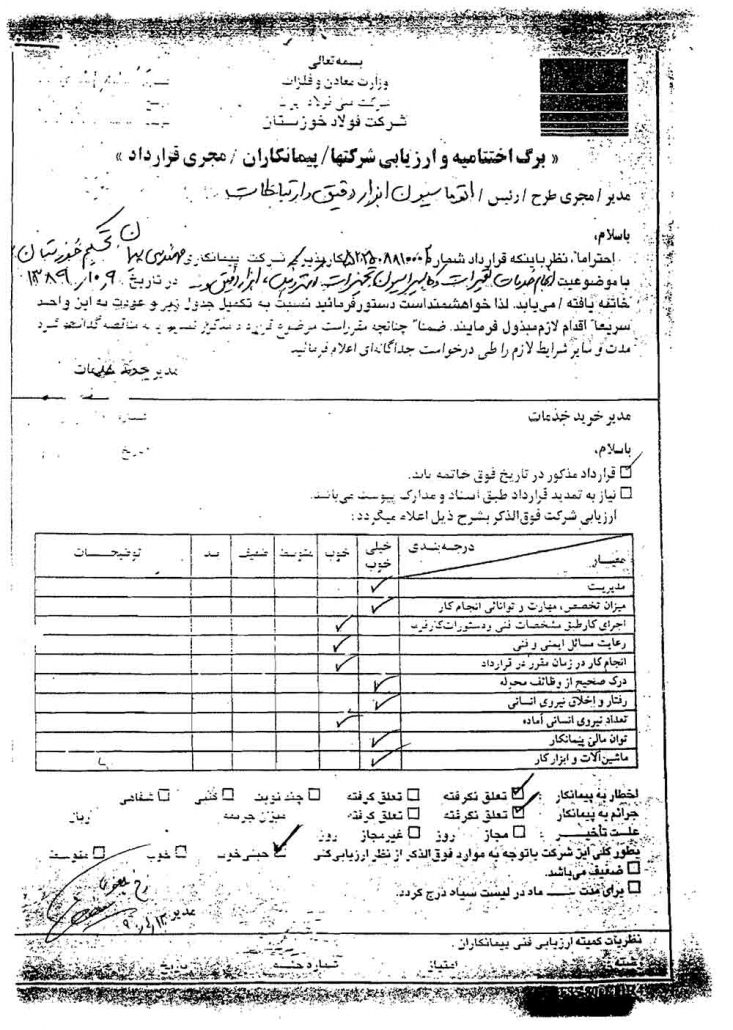 بسمه تعالی
وزارت معادن و فلزات
شرکت ملی فولاد ایران
شرکت فولاد خوزستان
« برگ اختتامیه و ارزیابی شرکتها/ پیمانکاران / مجری قرارداد »
مدیر / مجری طرح / رئیس / اتوماسیون ابزار دقیق و ارتباطات
باسلام،
احتراماً، نظر باینکه قرارداد شماره شرکت پیمانکاری مهندسی تحکیم خوزستان
با موضوعیت انجام خدمات تعمیرات و کالیبراسیون تجهیزات ابزار دقیق در تاریخ ۱۳۸۹/۱۰/۹
خاتمه یافته / می‌یابد. لذا خواهشمند است دستور فرمائید نسبت به تکمیل جدول زیر و عودت به این واحد
سریعاً اقدام لازم مبذول فرمایند. ضمناً چنانچه مقرر است موضوع قرارداد مذکور به مناقصه گذاشته شود
مدت و سایر شرایط لازم را طی درخواست جداگانه‌ای اعلام فرمائید
مدیر خرید خدمات
مدیر خرید خدمات
شماره
باسلام،
تاریخ
قرارداد مذکور در تاریخ فوق خاتمه یابد.
نیاز به تمدید قرارداد طبق اسناد و مدارک پیوست می‌باشد.
ارزیابی شرکت فوق‌الذکر بشرح ذیل اعلام میگردد:
معیار درجه‌بندی خیلی خوب خوب متوسط ضعیف بد توضیحات
مدیریت
میزان تخصص، مهارت و توانائی انجام کار
اجرای کار طبق مشخصات فنی و دستورات کارفرما
رعایت مسائل ایمنی و فنی
انجام کار در زمان مقرر در قرارداد
درک صحیح از وظائف محوله
رفتار و اخلاق نیروی انسانی
تعداد نیروی انسانی آماده
توان مالی پیمانکار
ماشین‌آلات و ابزار کار
اخطار به پیمانکار : تعلق نگرفته تعلق گرفته چند نوبت کتبی شفاهی
جرائم به پیمانکار : تعلق نگرفته تعلق گرفته میزان جریمه ریال
علت تأخیر : مجاز روز غیر مجاز روز
بطور کلی این شرکت با توجه به موارد فوق‌الذکر از نظر ارزیابی کلی خیلی خوب خوب متوسط
ضعیف می‌باشد.
برای مدت ماه در لیست سیاه درج گردد.
مدیر
نظریات کمیته ارزیابی فنی پیمانکاران :
رشته : امتیاز شماره جلسه تاریخ